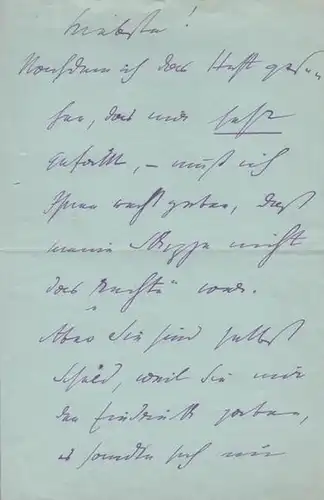 Liebste!
Nachdem ich das Heft gese-
hen, das mir sehr
gefällt, – muß ich
Ihnen recht geben, daß
meine Skizze nicht
das „Rechte“ war.
Aber Sie sind selbst
Schuld, weil Sie mir
den Eindruck gaben,
es handle sich um